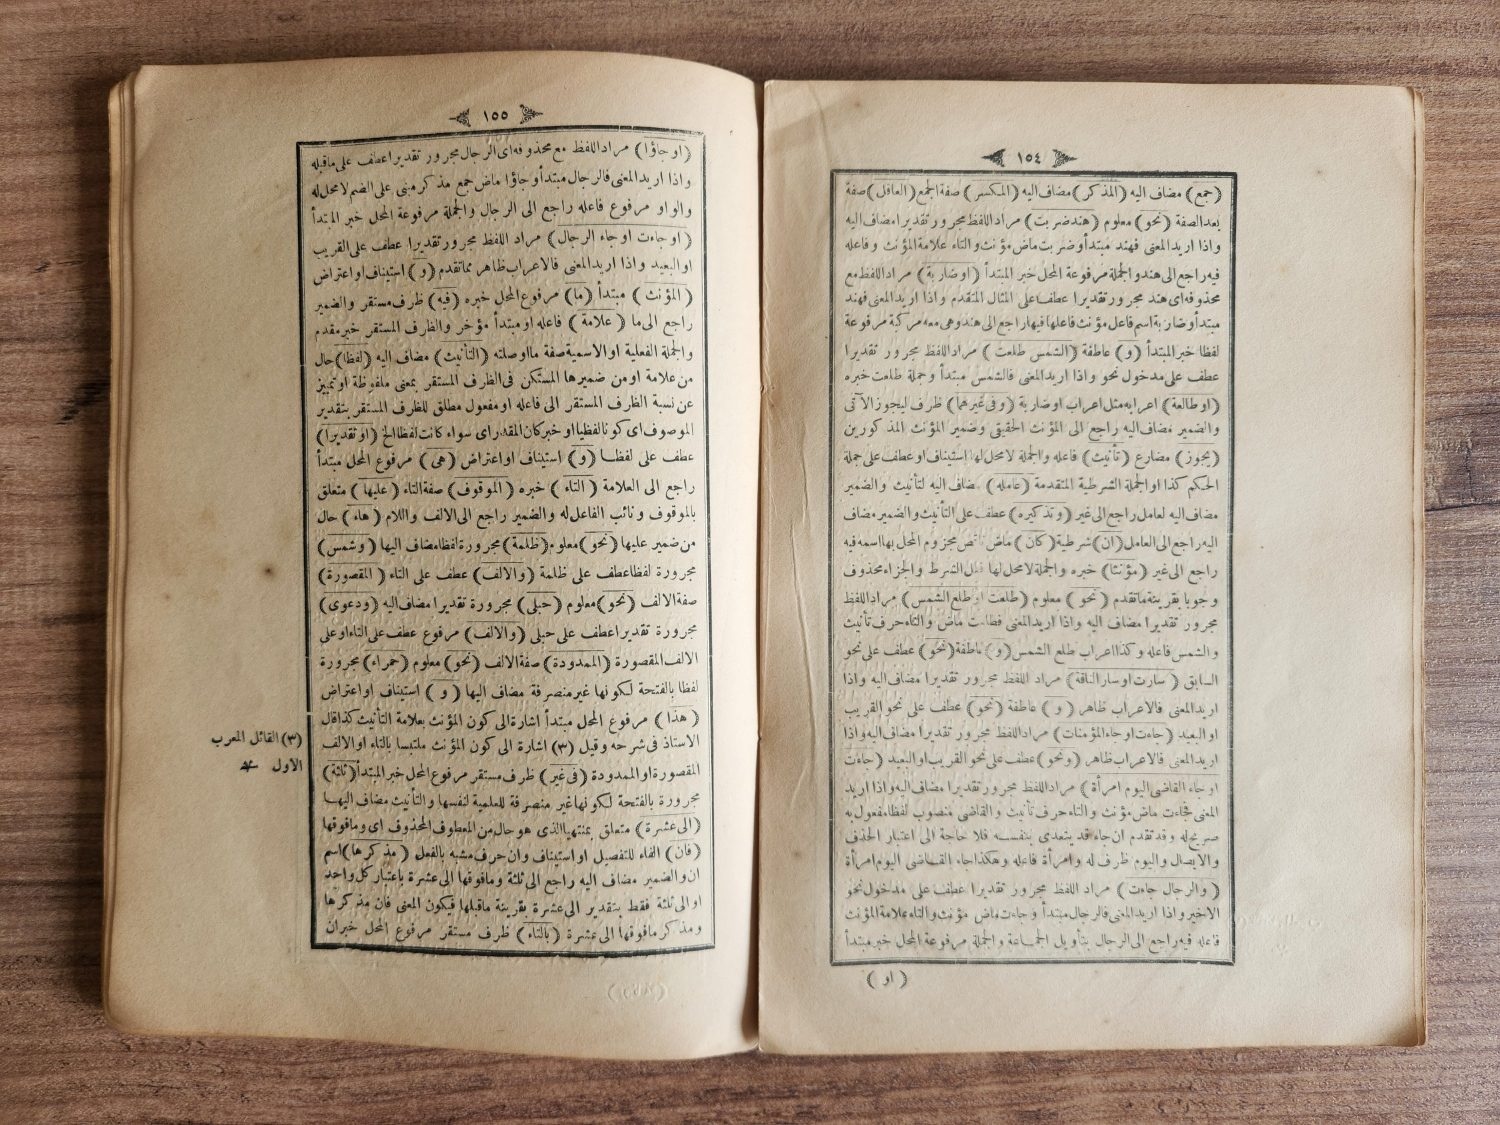 ١٥٤
(جمع) مضاف اليه (المذكر) مضاف اليه (المكسر) صفة الجمع (العاقل) صفة
بعد الصفة (نحو) معلوم (هند ضربت) مراد اللفظ مجرور تقديرا مضاف اليه
واذا اريد المعنى فهند مبتدأ وضربت ماض مؤنث والتاء علامة المؤنث وفاعله
فيه راجع الى هند والجملة مرفوعة المحل خبر المبتدأ (او ضاربة) مراد اللفظ مع
محذوفه اى هند مجرور تقديرا عطف على المثال المتقدم واذا اريد المعنى فهند
مبتدأ وضاربة اسم فاعل مؤنث فاعلها فيها راجع الى هند وهى معه مركبة مرفوعة
لفظا خبر المبتدأ (و) عاطفة (الشمس طلعت) مراد اللفظ مجرور تقديرا
عطف على مدخول نحو واذا اريد المعنى فالشمس مبتدأ وجملة طلعت خبره
(او طالعة) اعرابه مثل اعراب او ضاربة (وفى غيرهما) ظرف ليجوز الآتى
والضمير مضاف اليه راجع الى المؤنث الحقيقى وضمير المؤنث المذكورين
(يجوز) مضارع (تأنيث) فاعله والجملة لا محل لها استيناف او عطف على جملة
الحكم كذا او الجملة الشرطية المتقدمة (عامله) مضاف اليه لتأنيث والضمير
مضاف اليه لعامل راجع الى غير (وتذكيره) عطف على التأنيث والضمير مضاف
اليه راجع الى العامل (ان) شرطية (كان) ماض ناقص مجزوم المحل بها اسمه فيه
راجع الى غير (مؤنثا) خبره والجملة لا محل لها فعل الشرط والجزاء محذوف
وجوبا بقرينة ما تقدم (نحو) معلوم (طلعت او طلع الشمس) مراد اللفظ
مجرور تقديرا مضاف اليه واذا اريد المعنى فطلعت ماض والتاء حرف تأنيث
والشمس فاعله وكذا اعراب طلع الشمس (و) عاطفة (نحو) عطف على نحو
السابق (سارت او سار الناقة) مراد اللفظ مجرور تقديرا مضاف اليه واذا
اريد المعنى فالاعراب ظاهر (و) عاطفة (نحو) عطف على نحو القريب
او البعيد (جاءت او جاء المؤمنات) مراد اللفظ مجرور تقديرا مضاف اليه واذا
اريد المعنى فالاعراب ظاهر (ونحو) عطف على نحو القريب او البعيد (جاءت
او جاء القاضى اليوم امرأة) مراد اللفظ مجرور تقديرا مضاف اليه واذا اريد
المعنى فجاءت ماض مؤنث والتاء حرف تأنيث والقاضى منصوب لفظا مفعول به
صريح له وقد تقدم ان جاء قد يتعدى بنفسه فلا حاجة الى اعتبار الحذف
والايصال واليوم ظرف له وامرأة فاعله وهكذا جاء القاضى اليوم امرأة
(والرجال جاءت) مراد اللفظ مجرور تقديرا عطف على مدخول نحو
الاخير واذا اريد المعنى فالرجال مبتدأ وجاءت ماض مؤنث والتاء علامة المؤنث
فاعله فيه راجع الى الرجال بتأويل الجماعة والجملة مرفوعة المحل خبر مبتدأ
(او)
١٥٥
(او جاؤا) مراد اللفظ مع محذوفه اى الرجال مجرور تقديرا عطف على ما قبله
واذا اريد المعنى فالرجال مبتدأ وجاؤا ماض جمع مذكر مبنى على الضم لا محل له
والواو مرفوع فاعله راجع الى الرجال والجملة مرفوعة المحل خبر المبتدأ
(او جاءت او جاء الرجال) مراد اللفظ مجرور تقديرا عطف على القريب
او البعيد واذا اريد المعنى فالاعراب ظاهر مما تقدم (و) استيناف او اعتراض
(المؤنث) مبتدأ (ما) مرفوع المحل خبره (فيه) ظرف مستقر والضمير
راجع الى ما (علامة) فاعله او مبتدأ مؤخر والظرف المستقر خبر مقدم
والجملة الفعلية او الاسمية صفة ما او صلته (التأنيث) مضاف اليه (لفظا) حال
من علامة او من ضميرها المستكن فى الظرف المستقر بمعنى ملفوظة او تمييز
عن نسبة الظرف المستقر الى فاعله او مفعول مطلق للظرف المستقر بتقدير
الموصوف اى كونا لفظيا او خبر كان المقدر اى سواء كانت لفظا الخ (او تقديرا)
عطف على لفظا (و) استيناف او اعتراض (هى) مرفوع المحل مبتدأ
راجع الى العلامة (التاء) خبره (الموقوف) صفة التاء (عليها) متعلق
بالموقوف ونائب الفاعل له والضمير راجع الى الالف واللام (هاء) حال
من ضمير عليها (نحو) معلوم (ظلمة) مجرورة لفظا مضاف اليها (وشمس)
مجرورة لفظا عطف على ظلمة (والالف) عطف على التاء (المقصورة)
صفة الالف (نحو) معلوم (حبلى) مجرورة تقديرا مضاف اليه (ودعوى)
مجرورة تقديرا عطف على حبلى (والالف) مرفوع عطف على التاء او على
الالف المقصورة (الممدودة) صفة الالف (نحو) معلوم (حمراء) مجرورة
لفظا بالفتحة لكونها غير منصرفة مضاف اليها (و) استيناف او اعتراض
(هذا) مرفوع المحل مبتدأ اشارة الى كون المؤنث بعلامة التأنيث كذا قال
الاستاذ فى شرحه وقيل (٣) اشارة الى كون المؤنث ملتبسا بالتاء او الالف
المقصورة او الممدودة (فى غير) ظرف مستقر مرفوع المحل خبر المبتدأ (ثلثة)
مجرورة بالفتحة لكونها غير منصرفة للعلمية لنفسها والتأنيث مضاف اليها
(الى عشرة) متعلق بمنتهيا الذى هو حال من المعطوف المحذوف اى وما فوقها
(فان) الفاء للتفصيل او استيناف وان حرف مشبه بالفعل (مذكرها) اسم
ان والضمير مضاف اليه راجع الى ثلثة وما فوقها الى عشرة باعتبار كل واحد
او الى ثلثة فقط بتقدير الى عشرة بقرينة ما قبلها فيكون المعنى فان مذكرها
ومذكر ما فوقها الى عشرة (بالتاء) ظرف مستقر مرفوع المحل خبر ان
(٣) القائل المعرب
الاول